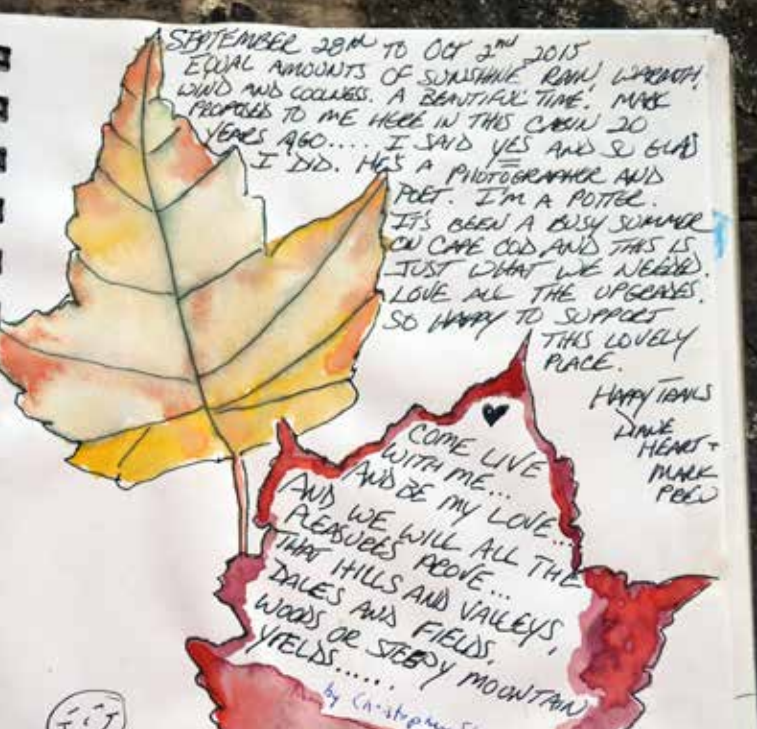 SEPTEMBER 28TH TO OCT 2nd 2015
EQUAL AMOUNTS OF SUNSHINE, RAIN, WARMTH,
WIND AND COOLNESS. A BEAUTIFUL TIME. MARK
PROPOSED TO ME HERE IN THIS CABIN 20
YEARS AGO.... I SAID YES AND SO GLAD
I DID. HE'S A PHOTOGRAPHER AND
POET. I'M A POTTER.
IT'S BEEN A BUSY SUMMER
ON CAPE COD AND THIS IS
JUST WHAT WE NEEDED.
LOVE ALL THE UPGRADES.
SO HAPPY TO SUPPORT
THIS LOVELY
PLACE.
HAPPY TRAILS
DIANE
HEART +
MARK
COME LIVE
WITH ME...
AND BE MY LOVE...
AND WE WILL ALL THE
PLEASURES PROVE...
THAT HILLS AND VALLEYS,
DALES AND FIELDS,
WOODS OR STEEPY MOUNTAIN
YIELDS......
by Christopher